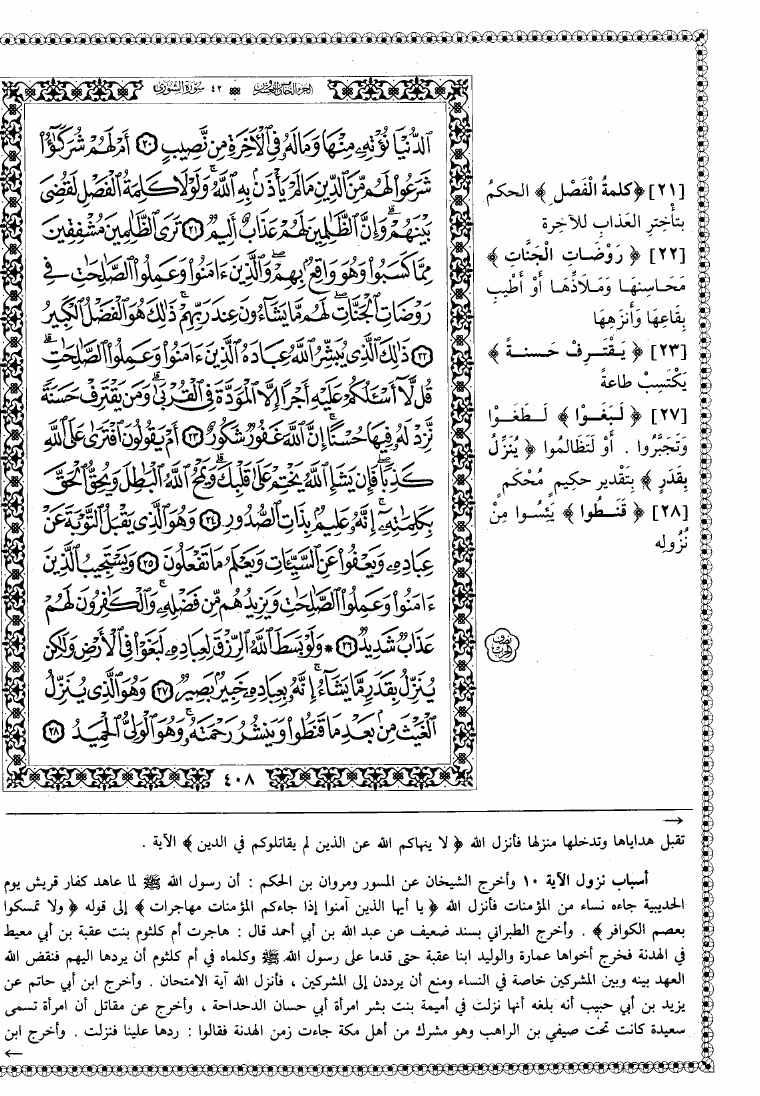 ٤٢ سُورَةُ الشُّورَىٰ
الدُّنْيَا نُؤْتِهِۦ مِنْهَا وَمَا لَهُۥ فِي الْأَخِرَةِ مِن نَّصِيبٍ ٢٠ أَمْ لَهُمْ شُرَكَٰٓؤُا۟
شَرَعُوا لَهُم مِّنَ الدِّينِ مَا لَمْ يَأْذَنۢ بِهِ اللَّهُ وَلَوْلَا كَلِمَةُ الْفَصْلِ لَقُضِيَ
بَيْنَهُمْ وَإِنَّ الظَّٰلِمِينَ لَهُمْ عَذَابٌ أَلِيمٌ ٢١ تَرَى الظَّٰلِمِينَ مُشْفِقِينَ
مِمَّا كَسَبُوا وَهُوَ وَاقِعٌۢ بِهِمْ وَالَّذِينَ ءَامَنُوا وَعَمِلُوا الصَّٰلِحَٰتِ فِي
رَوْضَاتِ الْجَنَّاتِ لَهُم مَّا يَشَآءُونَ عِندَ رَبِّهِمْ ذَٰلِكَ هُوَ الْفَضْلُ الْكَبِيرُ
٢٢ ذَٰلِكَ الَّذِي يُبَشِّرُ اللَّهُ عِبَادَهُ الَّذِينَ ءَامَنُوا وَعَمِلُوا الصَّٰلِحَٰتِ
قُل لَّآ أَسْـَٔلُكُمْ عَلَيْهِ أَجْرًا إِلَّا الْمَوَدَّةَ فِي الْقُرْبَىٰ وَمَن يَقْتَرِفْ حَسَنَةً
نَّزِدْ لَهُۥ فِيهَا حُسْنًا إِنَّ اللَّهَ غَفُورٌ شَكُورٌ ٢٣ أَمْ يَقُولُونَ افْتَرَىٰ عَلَى اللَّهِ
كَذِبًا فَإِن يَشَإِ اللَّهُ يَخْتِمْ عَلَىٰ قَلْبِكَ وَيَمْحُ اللَّهُ الْبَٰطِلَ وَيُحِقُّ الْحَقَّ
بِكَلِمَٰتِهِۦٓ إِنَّهُۥ عَلِيمٌۢ بِذَاتِ الصُّدُورِ ٢٤ وَهُوَ الَّذِي يَقْبَلُ التَّوْبَةَ عَنْ
عِبَادِهِۦ وَيَعْفُوا عَنِ السَّيِّـَٔاتِ وَيَعْلَمُ مَا تَفْعَلُونَ ٢٥ وَيَسْتَجِيبُ الَّذِينَ
ءَامَنُوا وَعَمِلُوا الصَّٰلِحَٰتِ وَيَزِيدُهُم مِّن فَضْلِهِۦ وَالْكَٰفِرُونَ لَهُمْ
عَذَابٌ شَدِيدٌ ٢٦ * وَلَوْ بَسَطَ اللَّهُ الرِّزْقَ لِعِبَادِهِۦ لَبَغَوْا فِي الْأَرْضِ وَلَٰكِن
يُنَزِّلُ بِقَدَرٍ مَّا يَشَآءُ إِنَّهُۥ بِعِبَادِهِۦ خَبِيرٌۢ بَصِيرٌ ٢٧ وَهُوَ الَّذِي يُنَزِّلُ
الْغَيْثَ مِنۢ بَعْدِ مَا قَنَطُوا وَيَنشُرُ رَحْمَتَهُۥ وَهُوَ الْوَلِيُّ الْحَمِيدُ ٢٨
٤٠٨
[٢١] ﴿ كلمةُ الْفَصْل ﴾ الحكمُ
بتأخيرِ العَذابِ للآخرة
[٢٢] ﴿ رَوْضَاتِ الْجَنَّاتِ ﴾
مَحَاسِنِهَا وَمَلَاذِّهَا أَوْ أَطْيبِ
بِقَاعِهَا وَأَنزَهِهَا
[٢٣] ﴿ يَـقْتَـرِفْ حَسنـةً ﴾
يَكْتَسِبْ طاعةً
[٢٧] ﴿ لَبَغَـوْا ﴾ لَـطَغَـوْا
وَتَجَبَّرُوا . أَوْ لَتَظَالمُوا ﴿ يُنَزِّلُ
بِقَدَرٍ ﴾ بِتَقْديرٍ حكيمٍ مُحْكَمٍ
[٢٨] ﴿ قَنَـطُوا ﴾ يَئِسُـوا مِنْ
نُزُولِه
تقبل هداياها وتدخلها منزلها فأنزل الله ﴿ لا ينهاكم الله عن الذين لم يقاتلوكم في الدين ﴾ الآية .
أسباب نزول الآية ١٠ وأخرج الشيخان عن المسور ومروان بن الحكم : أن رسول الله ﷺ لما عاهد كفار قريش يوم
الحديبية جاءه نساء من المؤمنات فأنزل الله ﴿ يا أيها الذين آمنوا إذا جاءكم المؤمنات مهاجرات ﴾ إلى قوله ﴿ ولا تمسكوا
بعصم الكوافر ﴾ . وأخرج الطبراني بسند ضعيف عن عبد الله بن أبي أحمد قال : هاجرت أم كلثوم بنت عقبة بن أبي معيط
في الهدنة فخرج أخواها عمارة والوليد ابنا عقبة حتى قدما على رسول الله ﷺ وكلماه في أم كلثوم أن يردها اليهم فنقض الله
العهد بينه وبين المشركين خاصة في النساء ومنع أن يرددن إلى المشركين ، فأنزل الله آية الامتحان . وأخرج ابن أبي حاتم عن
يزيد بن أبي حبيب أنه بلغه أنها نزلت في أميمة بنت بشر امرأة أبي حسان الدحداحة ، وأخرج عن مقاتل أن امرأة تسمى
سعيدة كانت تحت صيفي بن الراهب وهو مشرك من أهل مكة جاءت زمن الهدنة فقالوا : ردها علينا فنزلت . وأخرج ابن